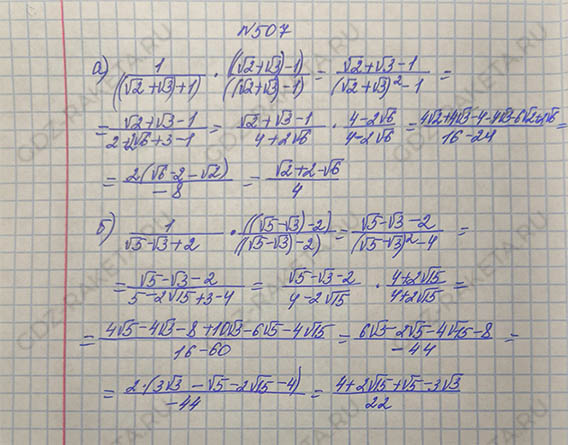 №507
а) 1/((√2+√3)+1) · ((√2+√3)-1)/((√2+√3)-1) = (√2+√3-1)/((√2+√3)²-1) =
= (√2+√3-1)/(2+2√6+3-1) = (√2+√3-1)/(4+2√6) · (4-2√6)/(4-2√6) = (4√2+4√3-4-4√3-6√2+2√6)/(16-24) =
= 2(√6-2-√2)/(-8) = (√2+2-√6)/4
б) 1/(√5-√3+2) · ((√5-√3)-2)/((√5-√3)-2) = (√5-√3-2)/((√5-√3)²-4) =
= (√5-√3-2)/(5-2√15+3-4) = (√5-√3-2)/(4-2√15) · (4+2√15)/(4+2√15) =
= (4√5-4√3-8+10√3-6√5-4√15)/(16-60) = (6√3-2√5-4√15-8)/(-44) =
= 2·(3√3-√5-2√15-4)/(-44) = (4+2√15+√5-3√3)/22
GDZ-RAKETA.RU